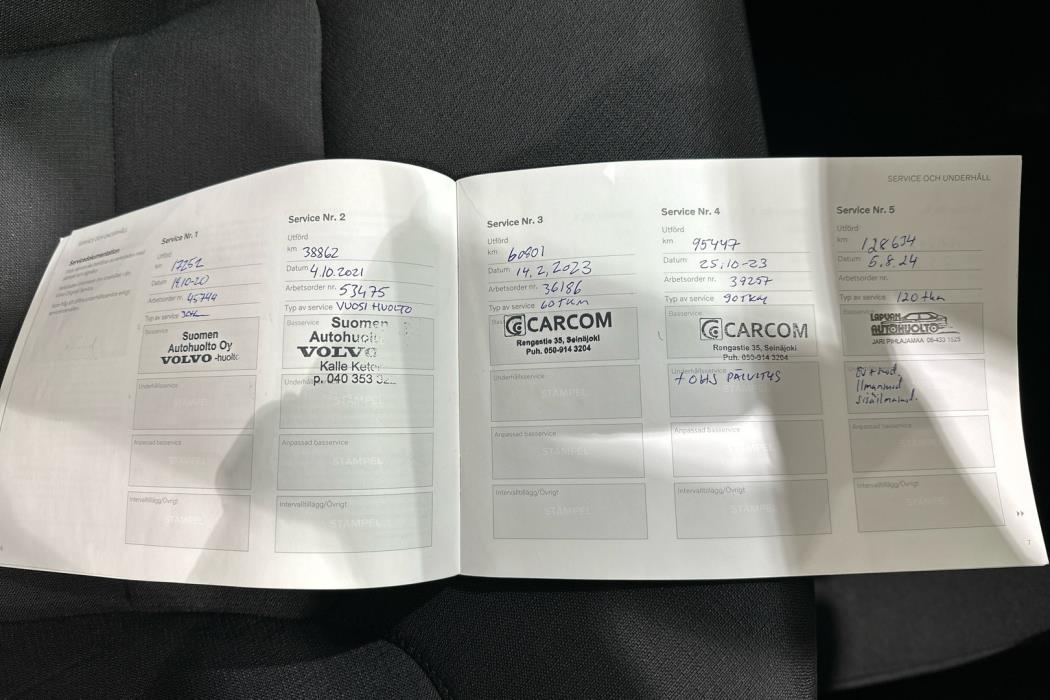 SERVICE OCH UNDERHÅLL
Servicedokumentation
Service Nr. 1
Utförd
km 17252
Datum 19.10-20
Arbetsorder nr. 45744
Typ av service
Basservice
Suomen
Autohuolto Oy
VOLVO -huolto
Underhållsservice
STÄMPEL
Anpassad basservice
STÄMPEL
Intervalltillägg/Övrigt
STÄMPEL
Service Nr. 2
Utförd
km 38862
Datum 4.10.2021
Arbetsorder nr. 53475
Typ av service VUOSI HUOLTO
Basservice
Suomen
VOLVO
Kalle
p. 040 353
STÄMPEL
Anpassad basservice
STÄMPEL
Intervalltillägg/Övrigt
STÄMPEL
SERVICE OCH UNDERHÅLL
Service Nr. 3
Utförd
km 60801
Datum 14.2.2023
Arbetsorder nr. 36186
Typ av service 60TKM
CARCOM
Rengastie 35, Seinäjoki
Puh. 050-914 3204
Underhållsservice
STÄMPEL
Anpassad basservice
STÄMPEL
Intervalltillägg/Övrigt
STÄMPEL
Service Nr. 4
Utförd
km 95447
Datum 25.10-23
Arbetsorder nr. 39257
Typ av service 90TKM
Basservice
CARCOM
Rengastie 35, Seinäjoki
Puh. 050-914 3204
Underhållsservice
+ OHJS PÄIVITYS
Anpassad basservice
STÄMPEL
Intervalltillägg/Övrigt
STÄMPEL
Service Nr. 5
Utförd
km 128634
Datum 5.8.24
Arbetsorder nr.
Typ av service 120 tkm
LAPUAN
AUTOHUOLTO
JARI PIHLAJAMAA 06-433 1525
Ilmansuod.
sisäilmansuod.
Anpassad basservice
STÄMPEL
Intervalltillägg/Övrigt
STÄMPEL
7